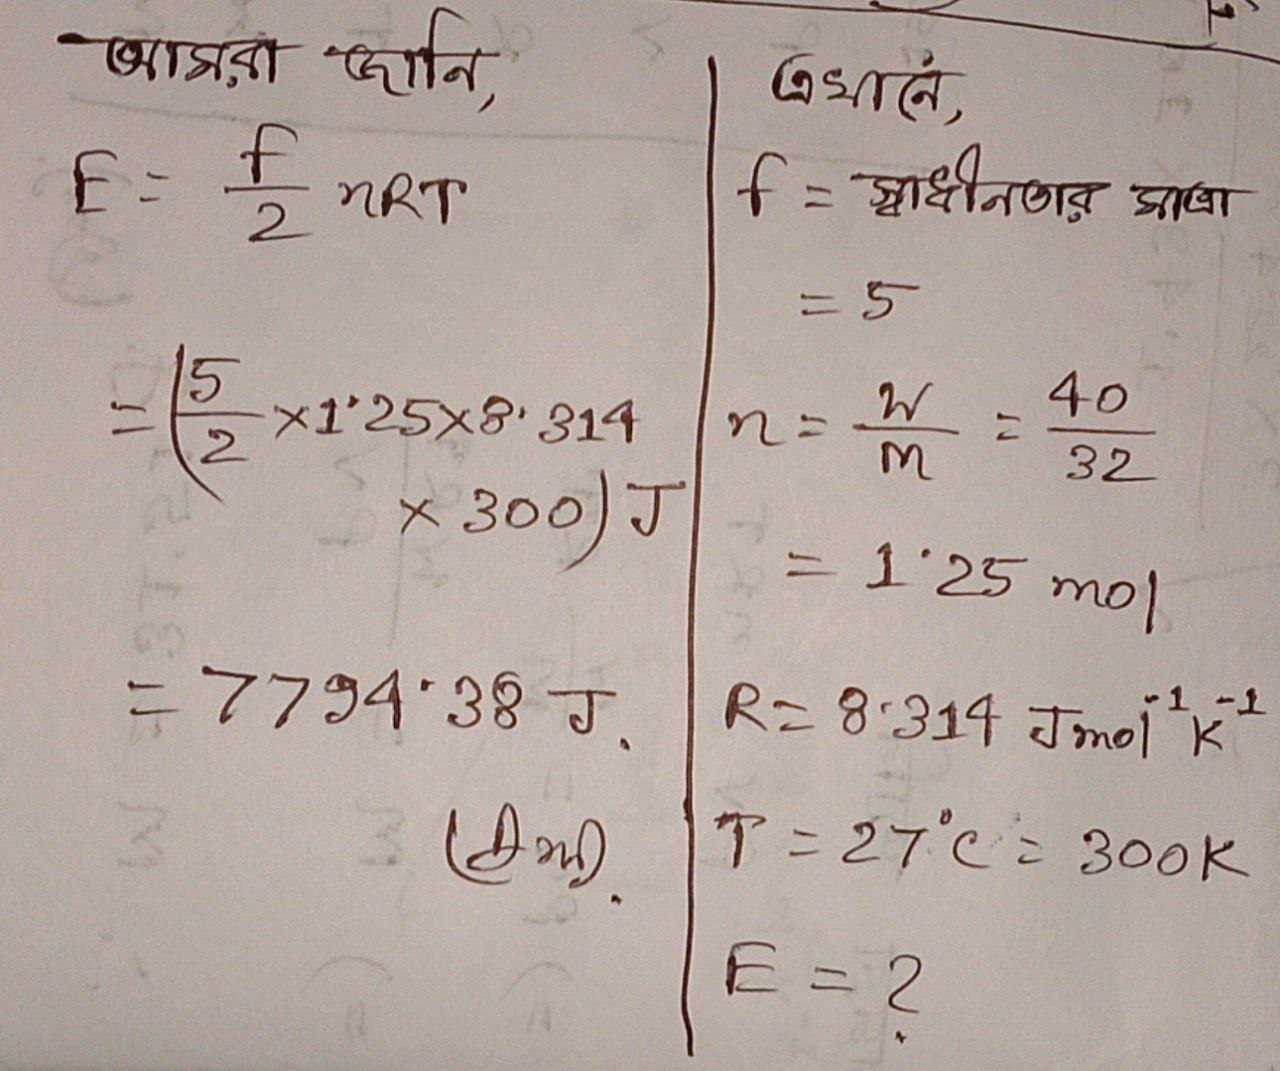 আমরা জানি,
E = f/2 nRT
= (5/2 ×1·25×8·314
× 300) J
= 7794·38 J.
(Ans).
এখানে,
f = স্বাধীনতার মাত্রা
= 5
n = w/m = 40/32
= 1·25 mol
R = 8·314 Jmol⁻¹K⁻¹
T = 27°C = 300K
E = ?